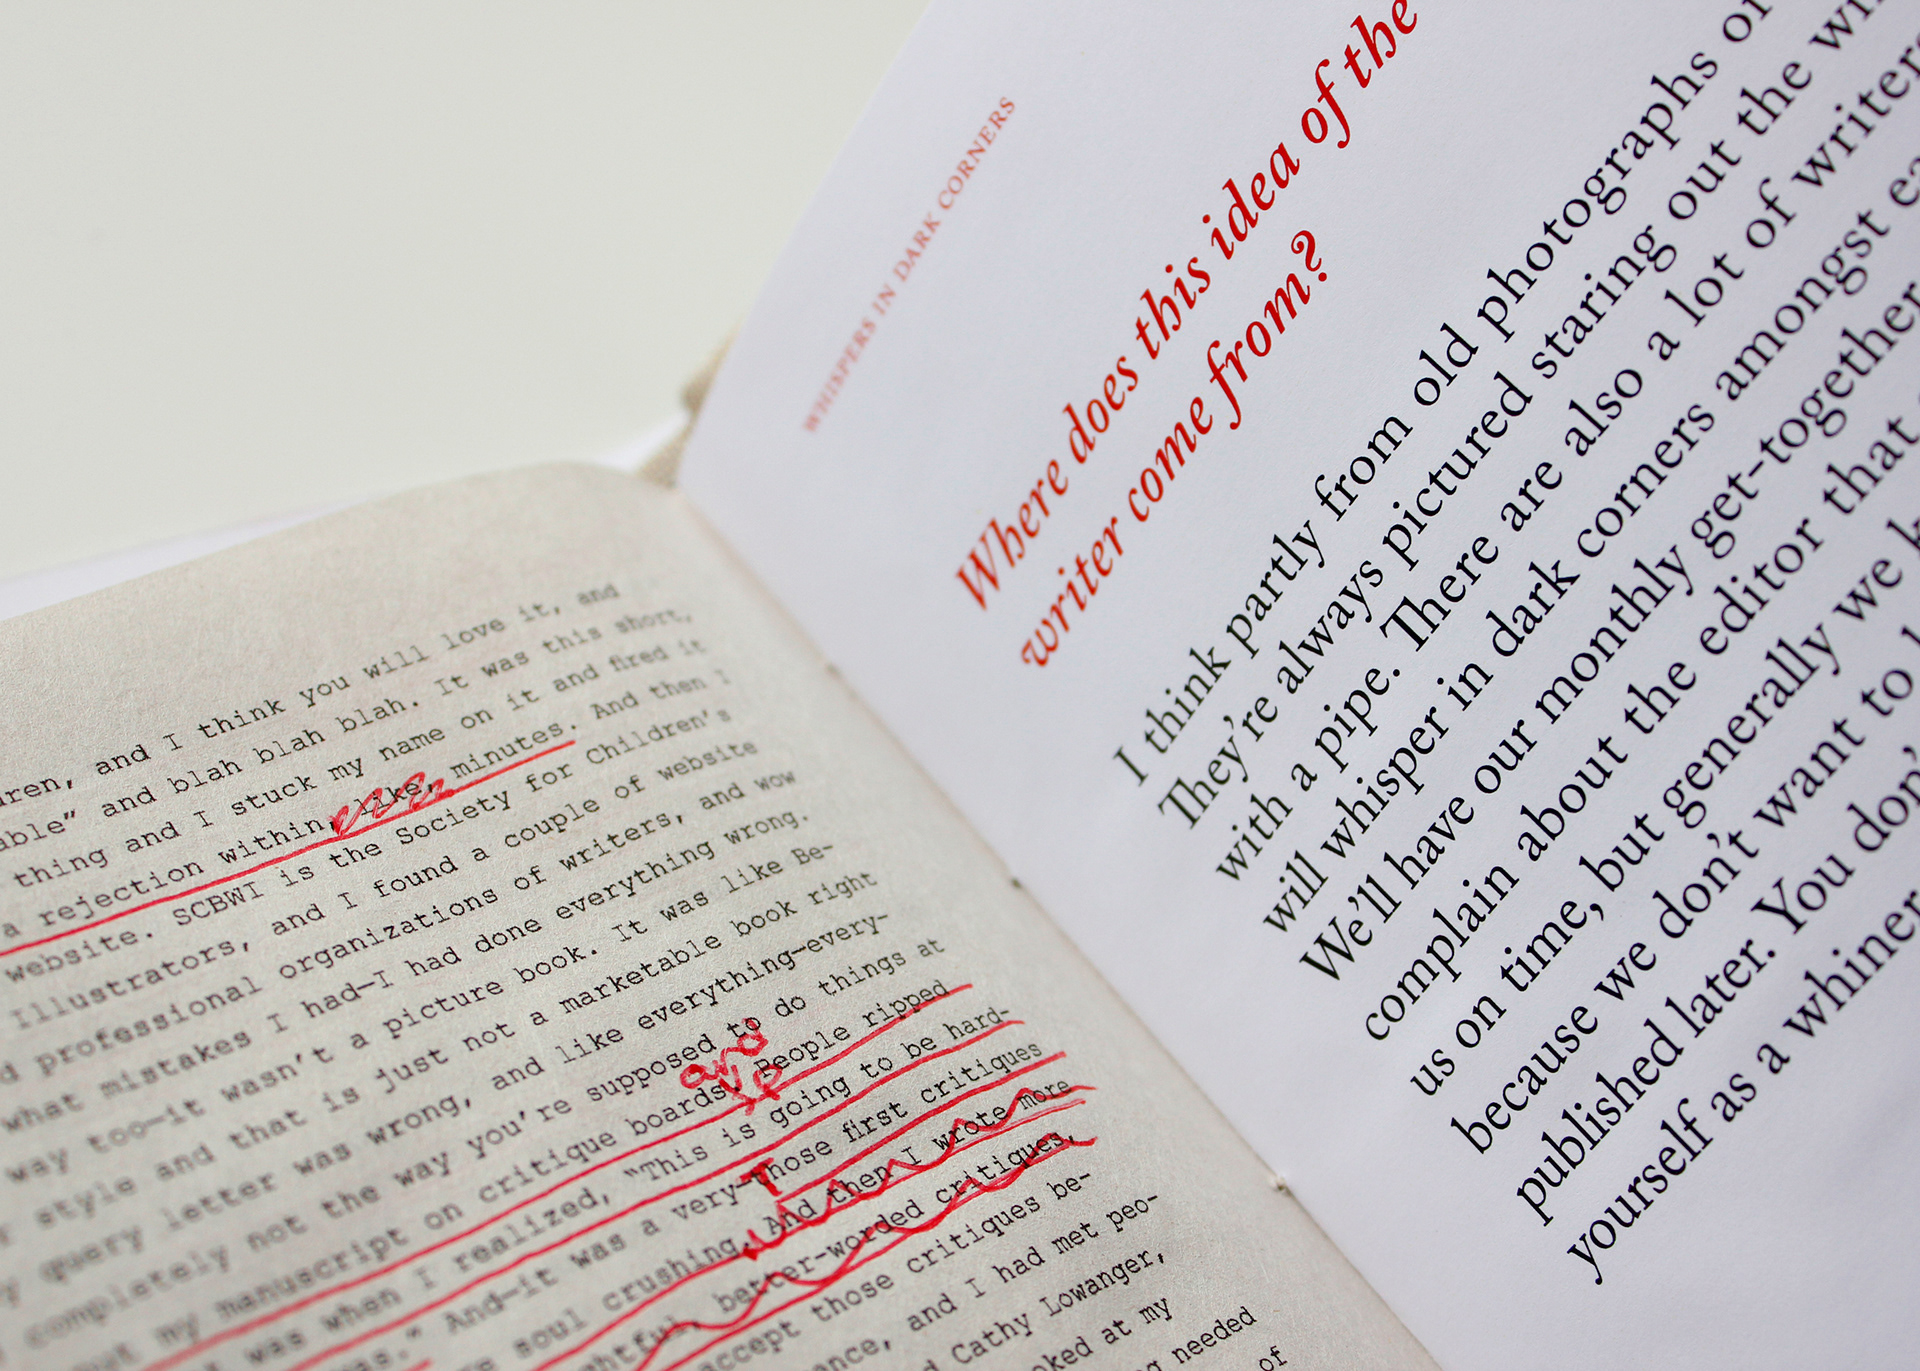 and I think you will love it, and
able” and blah blah blah. It was this short,
thing and I stuck my name on it and fired it
a rejection within, like, minutes. And then I
website. SCBWI is the Society for Children’s
Illustrators, and I found a couple of website
professional organizations of writers, and wow
what mistakes I had—I had done everything wrong.
way too—it wasn’t a picture book. It was like Be-
style and that is just not a marketable book right
query letter was wrong, and like everything—every-
completely not the way you’re supposed to do things at
and
my manuscript on critique boards. People ripped
was when I realized, “This is going to be hard-
” And—it was a very—those first critiques
T
soul crushing. And then I wrote more
better-worded critiques,
accept those critiques be-
and I had met peo-
Cathy Lowanger,
at my
needed
of
WHISPERS IN DARK CORNERS
Where does this idea of the
writer come from?
I think partly from old photographs
They’re always pictured staring out the
with a pipe. There are also a lot of writers
will whisper in dark corners amongst
We’ll have our monthly get-together
complain about the editor that
us on time, but generally we
because we don’t want to
published later. You don’
yourself as a whiner